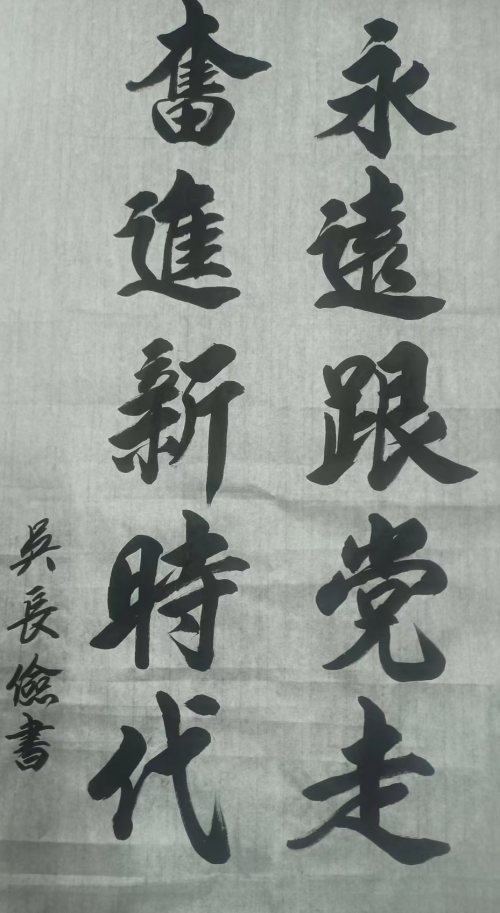 永遠跟党走
奮進新時代
吳長儉書